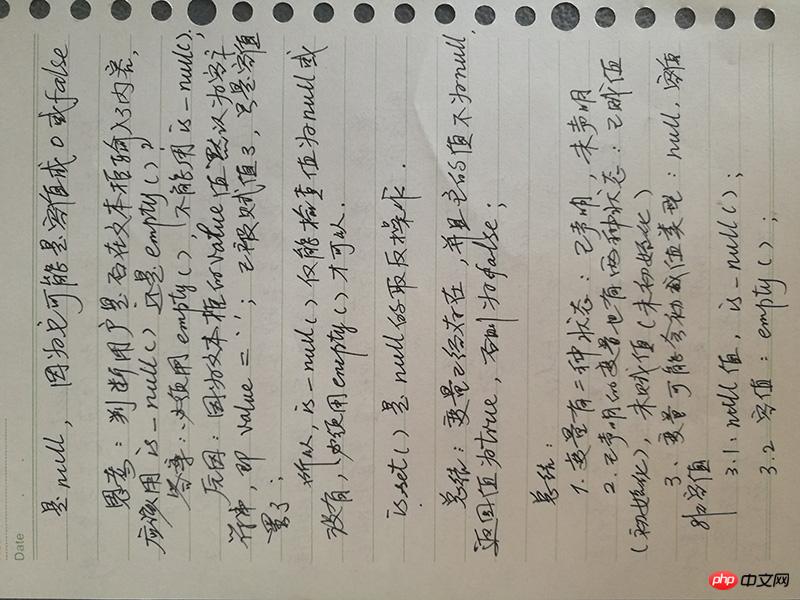 是null, 因为它可能是空值或0或false
思考:判断用户是否在文本框输入了内容,
应该用is-null()还是empty()?
答案:必须用empty(),不能用is-null(),
原因:因为文本框的value值默认为空字
符串,即value='';已被赋值了,只是空值
罢了;
所以,is-null()仅能检查值为null或
没有,必使用empty()才可以.
isset()是null的取反操作.
总结:变量已经存在,并且它的值不为null,
返回值为true,否则为false;
总结:
1.变量有二种状态:已声明,未声明
2.已声明的变量也有两种状态:已赋值
(初始化),未赋值(未初始化)
3、变量可能会初始值类型:null,空值
非空值
3.1:null值,is-null();
3.2空值:empty();
Date
php中文网